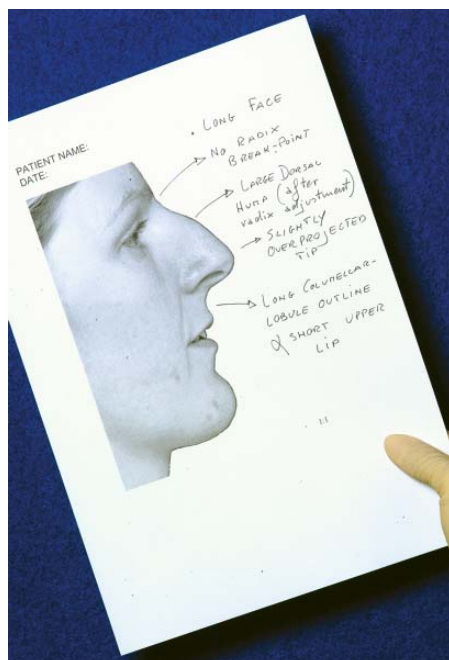 PATIENT NAME:
DATE:
• LONG FACE
NO RADIX
BREAK-POINT
LARGE DORSAL
HUMP (after
radix adjustment)
SLIGHTLY
OVERPROJECTED
TIP
LONG COLUMELLAR-
LOBULE OUTLINE
& SHORT UPPER
LIP
1:1